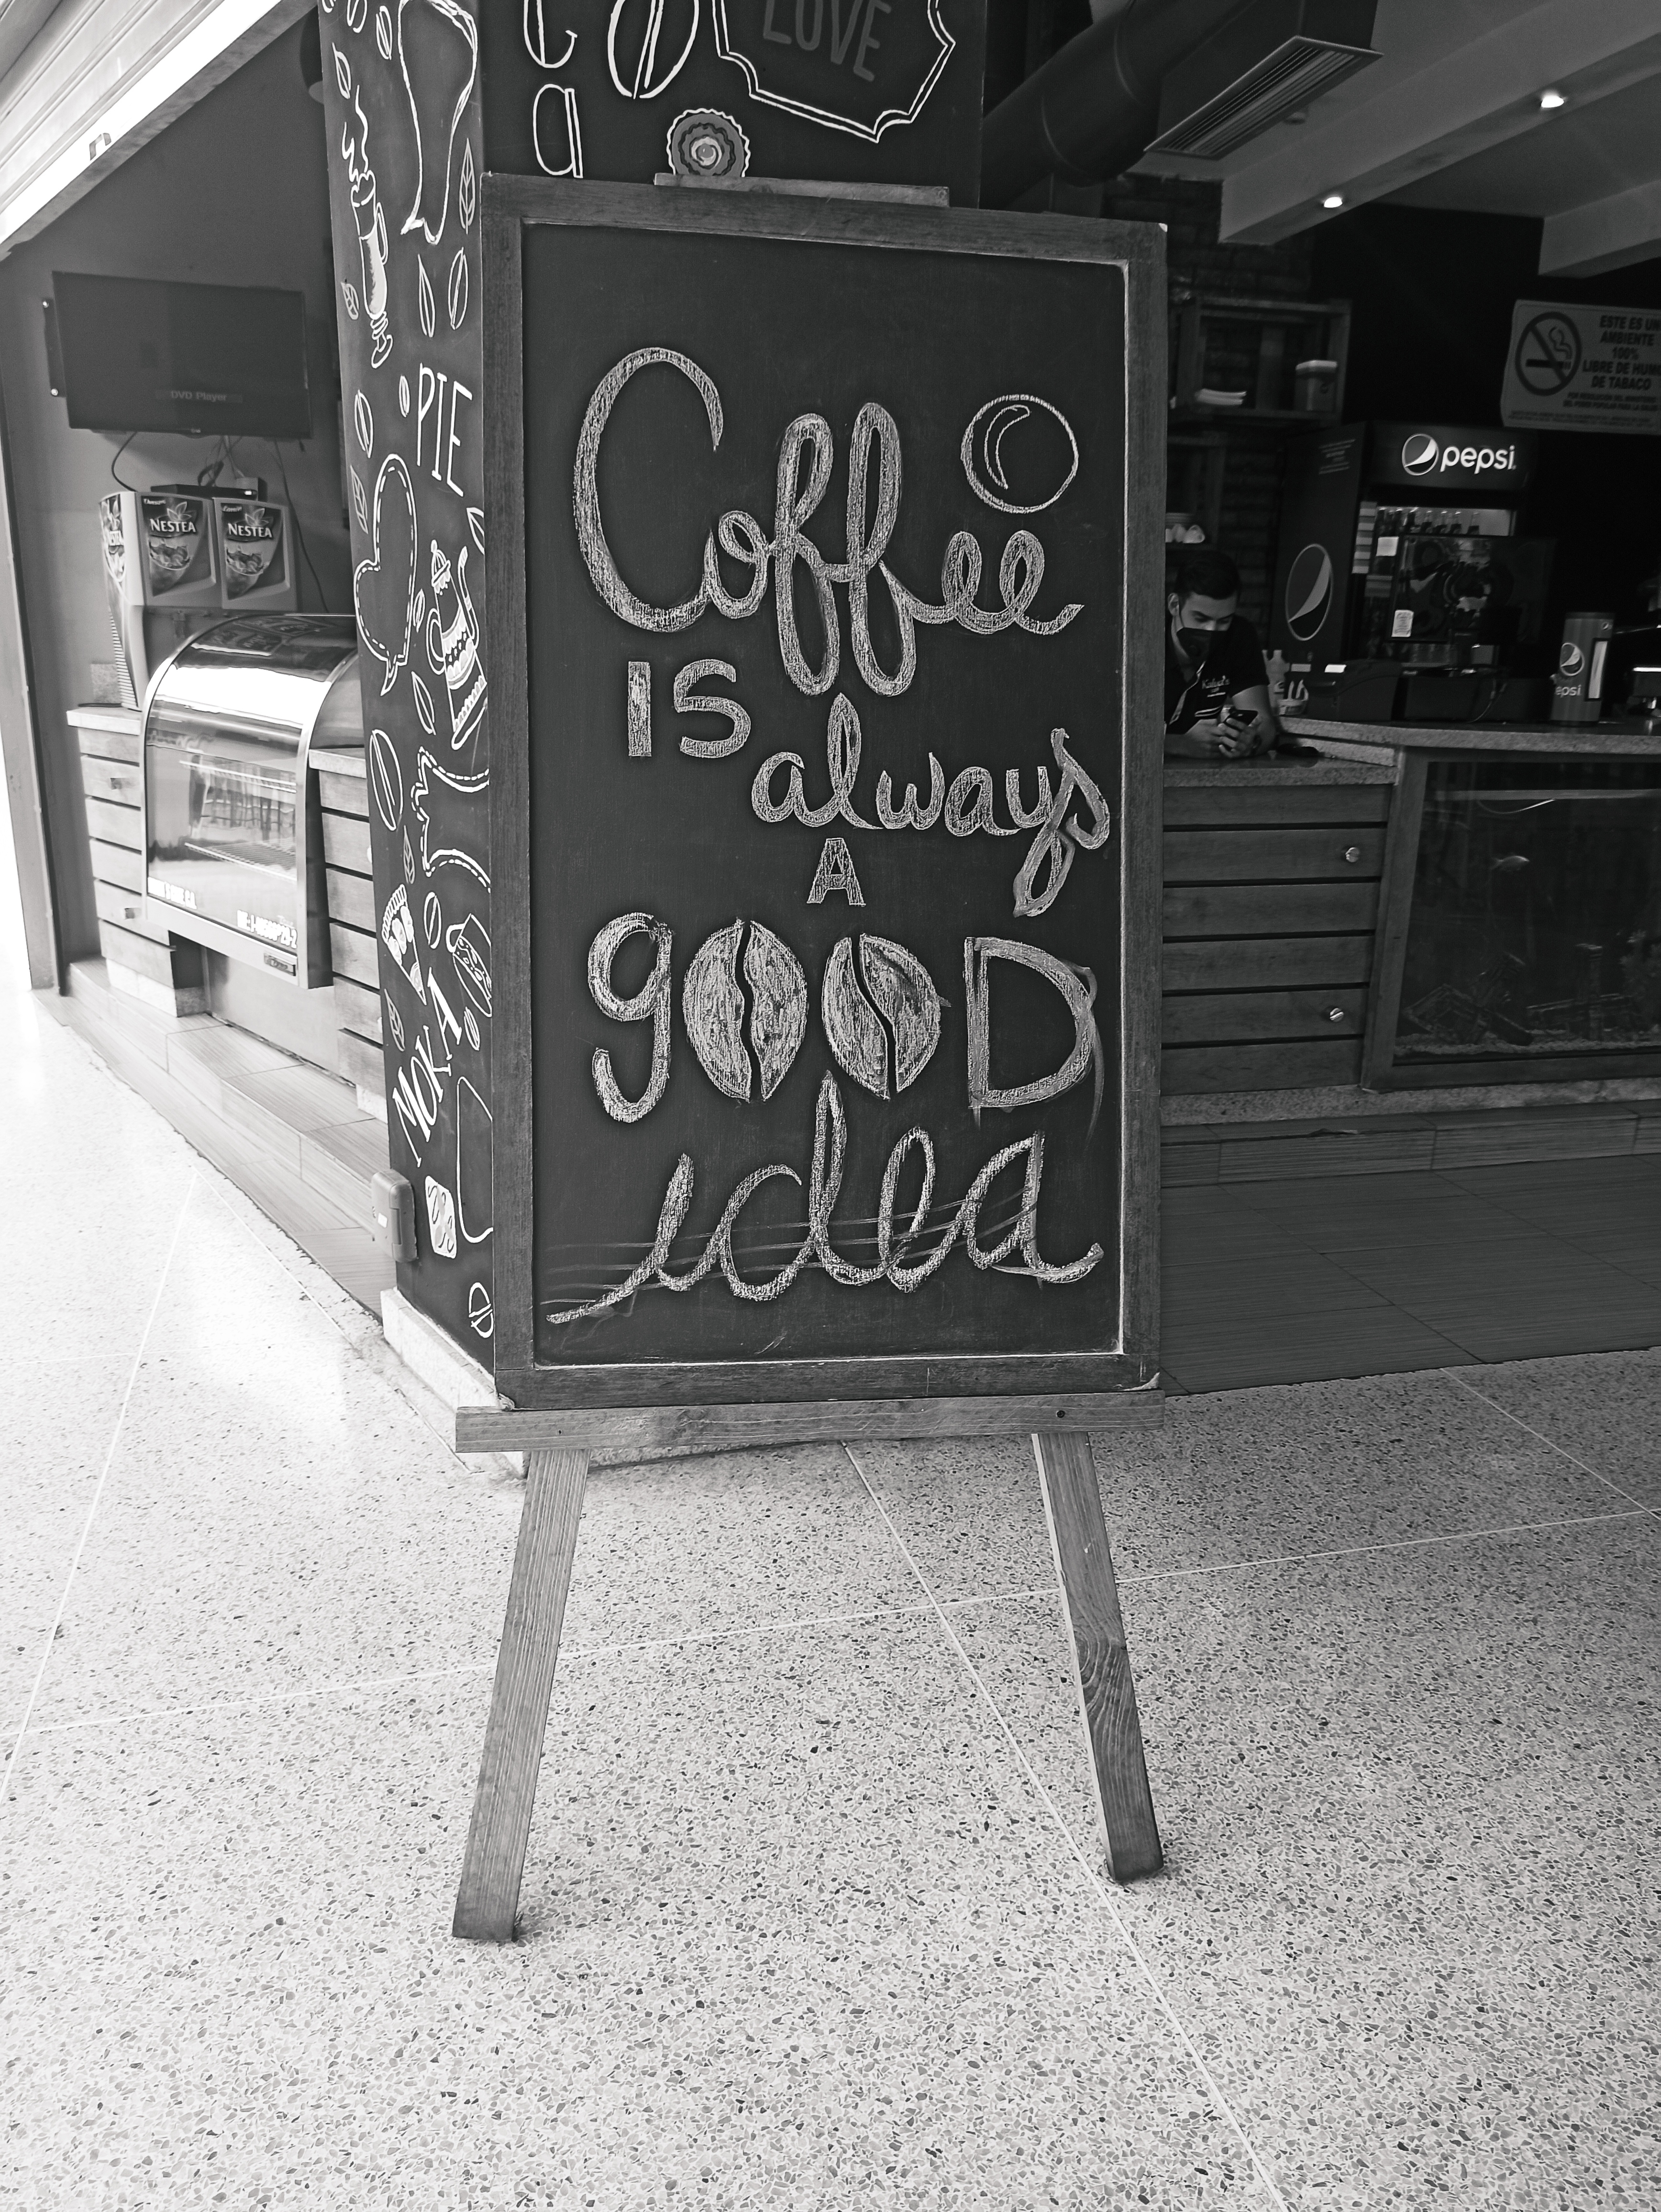 LOVE
a
PIE
MOKA
DVD Player
NESTEA
NESTEA
Coffee
IS
always
A
gOOD
idea
ESTE ES UN
AMBIENTE
100%
LIBRE DE HUMO
DE TABACO
pepsi
epsi